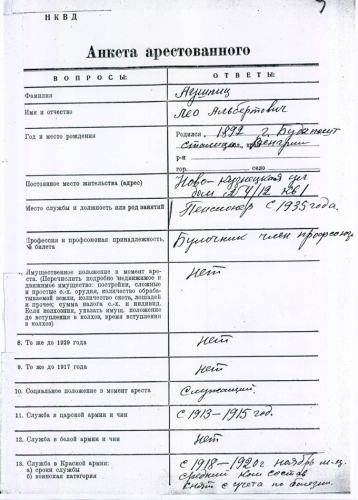 НКВД
Анкета арестованного
ВОПРОСЫ: ОТВЕТЫ:
Фамилия
Имя и отчество Лео Альбертович
Год и место рождения Родился 1892 г Будапешт
столица Венгрии
р-н
гор. село
Постоянное место жительства (адрес) Ново-Кузнецкая ул
дом № 4/12 кв 1
Место службы и должность или род занятий Пенсионер с 1935 года.
Профессия и профсоюзная принадлежность, № билета Булочник член профсоюз.
Имущественное положение в момент ареста. (Перечислить подробно недвижимое и движимое имущество: постройки, сложные и простые с.-х. орудия, количество обрабатываемой земли, количество скота, лошадей и прочее; сумма налога с.-х. и индивид. Если колхозник, указать имущ. положение до вступления в колхоз, время вступления в колхоз) Нет
8. То же до 1929 года нет
9. То же до 1917 года нет
10. Социальное положение в момент ареста Служащий.
11. Служба в царской армии и чин с 1913-1915 год.
12. Служба в белой армии и чин Нет
13. Служба в Красной армии: с 1918-1920г ноябрь м-ц.
а) сроки службы средний ком состав
б) воинская категория снят с учета по болезни.